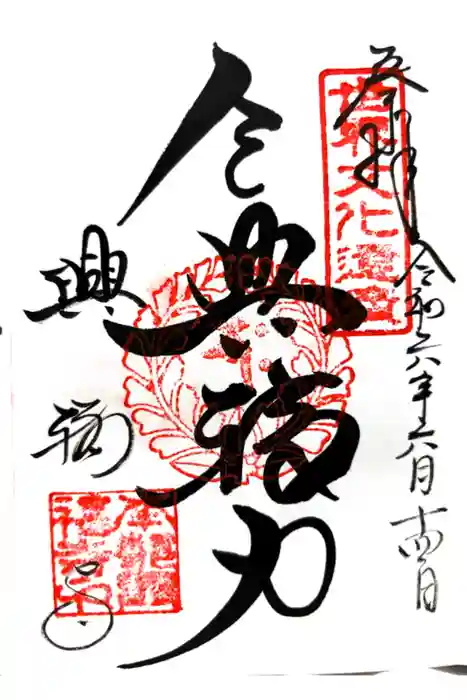 奉拝
世界文化遺産
令和六年六月十四日
令興福力
興福寺